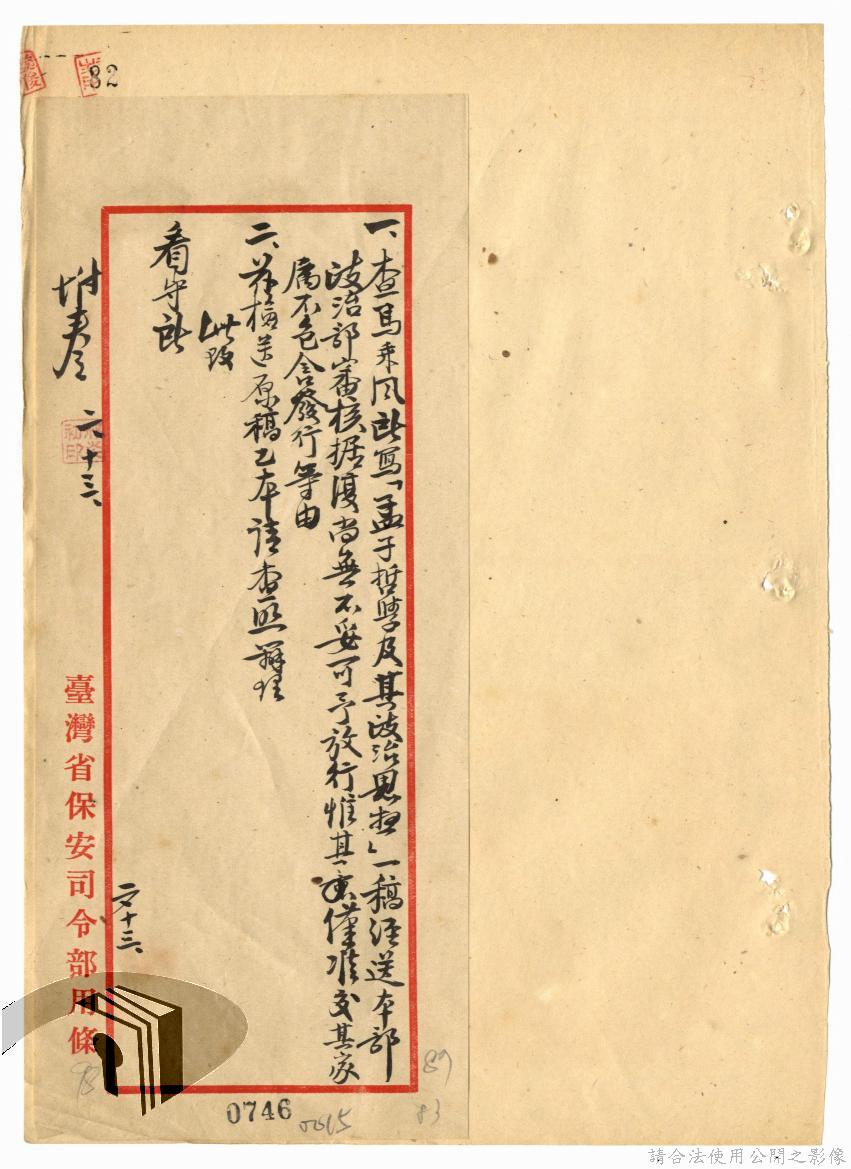 82
一、查馬乘風所寫「孟子哲學及其政治思想」一稿經送本部
政治部審核据復尚無不妥可予放行惟其意僅准交其家
屬不包含發行等由
二、茲檢送原稿乙本請查照辦理
此致
看守所
附卷 六十三、
六十三、
臺灣省保安司令部用條
0746
0015
89
83
請合法使用公開之影像